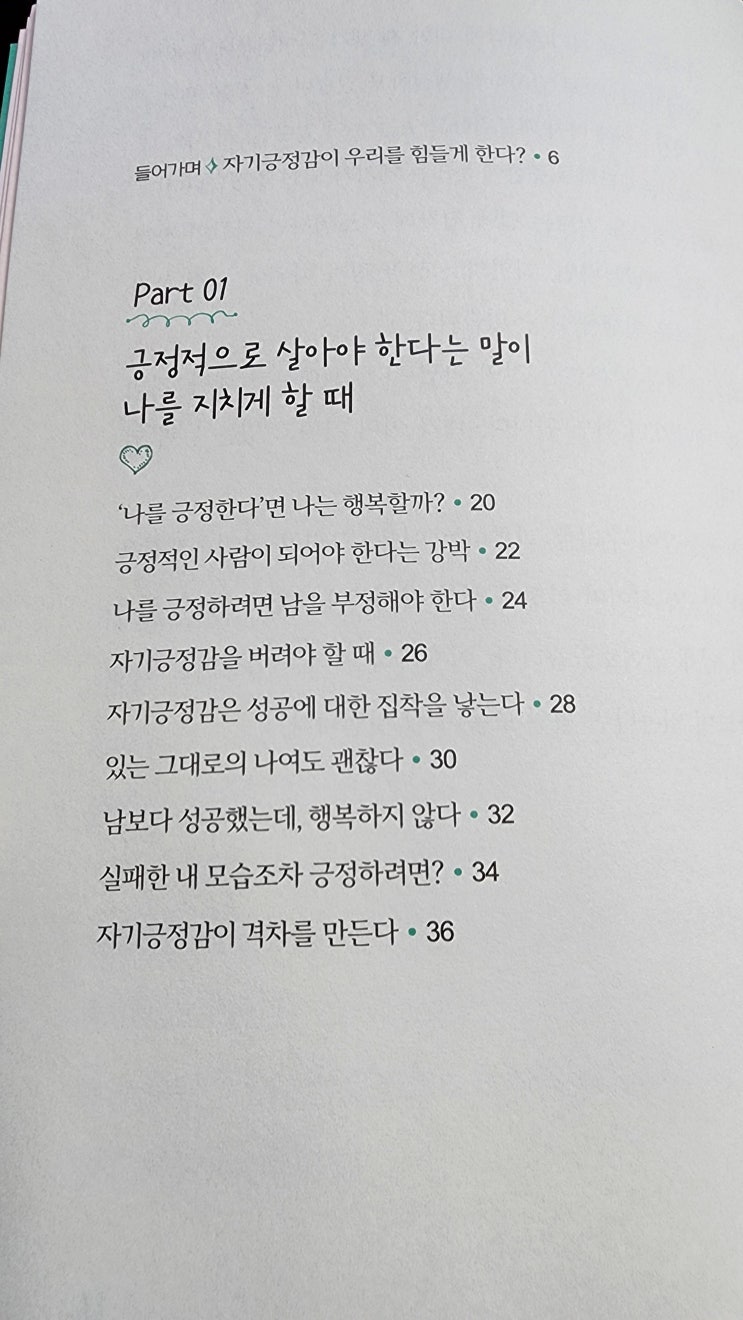 들어가며 ✧ 자기긍정감이 우리를 힘들게 한다? • 6
Part 01
긍정적으로 살아야 한다는 말이
나를 지치게 할 때
‘나를 긍정한다’면 나는 행복할까? • 20
긍정적인 사람이 되어야 한다는 강박 • 22
나를 긍정하려면 남을 부정해야 한다 • 24
자기긍정감을 버려야 할 때 • 26
자기긍정감은 성공에 대한 집착을 낳는다 • 28
있는 그대로의 나여도 괜찮다 • 30
남보다 성공했는데, 행복하지 않다 • 32
실패한 내 모습조차 긍정하려면? • 34
자기긍정감이 격차를 만든다 • 36